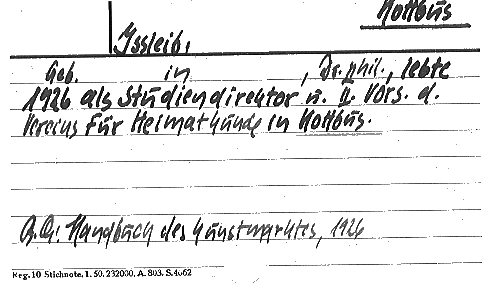 Kottbus
Issleib,
Geb. in , Dr. phil., lebte
1926 als Studiendirektor u. II. Vors. d.
Vereins für Heimatkunde in Kottbus.
Q.Qu: Handbuch des Kunstmarktes, 1926
Reg. 10 Stichnote, 1. 50. 232000, A. 803. S. 4062